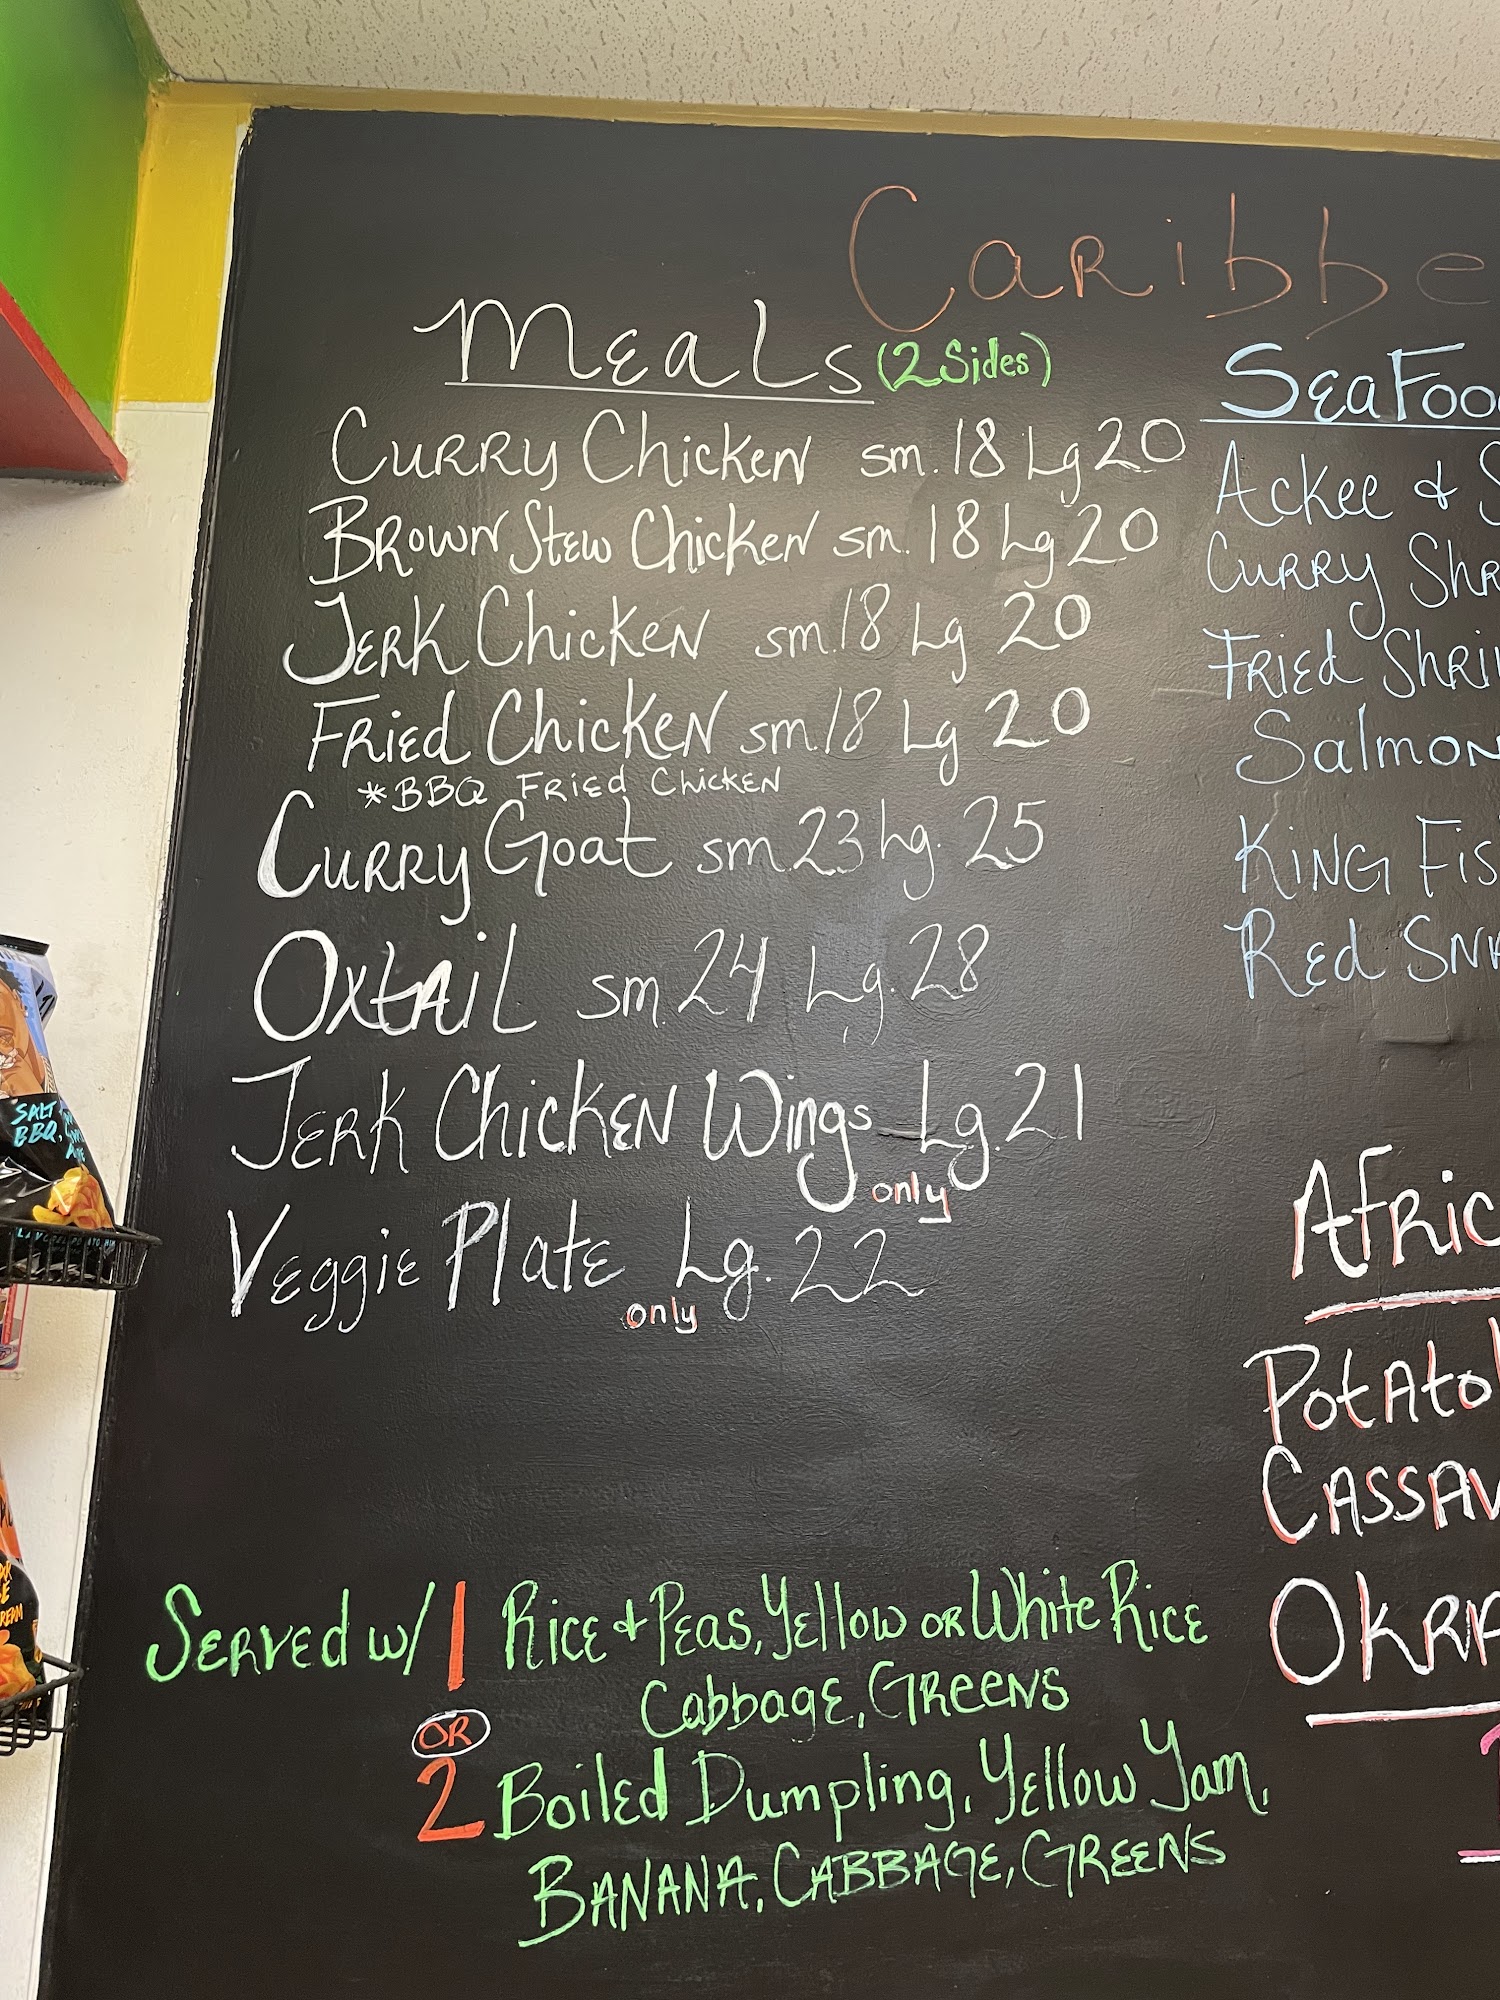 Caribbe
Meals (2 Sides)
Curry Chicken sm. 18 Lg 20
Brown Stew Chicken sm. 18 Lg 20
Jerk Chicken sm. 18 Lg 20
Fried Chicken sm. 18 Lg 20
*BBQ Fried Chicken
Curry Goat sm. 23 Lg. 25
Oxtail sm. 24 Lg. 28
Jerk Chicken Wings Lg. 21
only
Veggie Plate Lg. 22
only
Served w/ 1 Rice & Peas, Yellow or White Rice
Cabbage, Greens
OR
2 Boiled Dumpling, Yellow Yam,
Banana, Cabbage, Greens
SeaFoo
Ackee & S
Curry Shr
Fried Shri
Salmon
King Fis
Red Sna
Afric
Potato
Cassav
Okra
SALT
BBQ